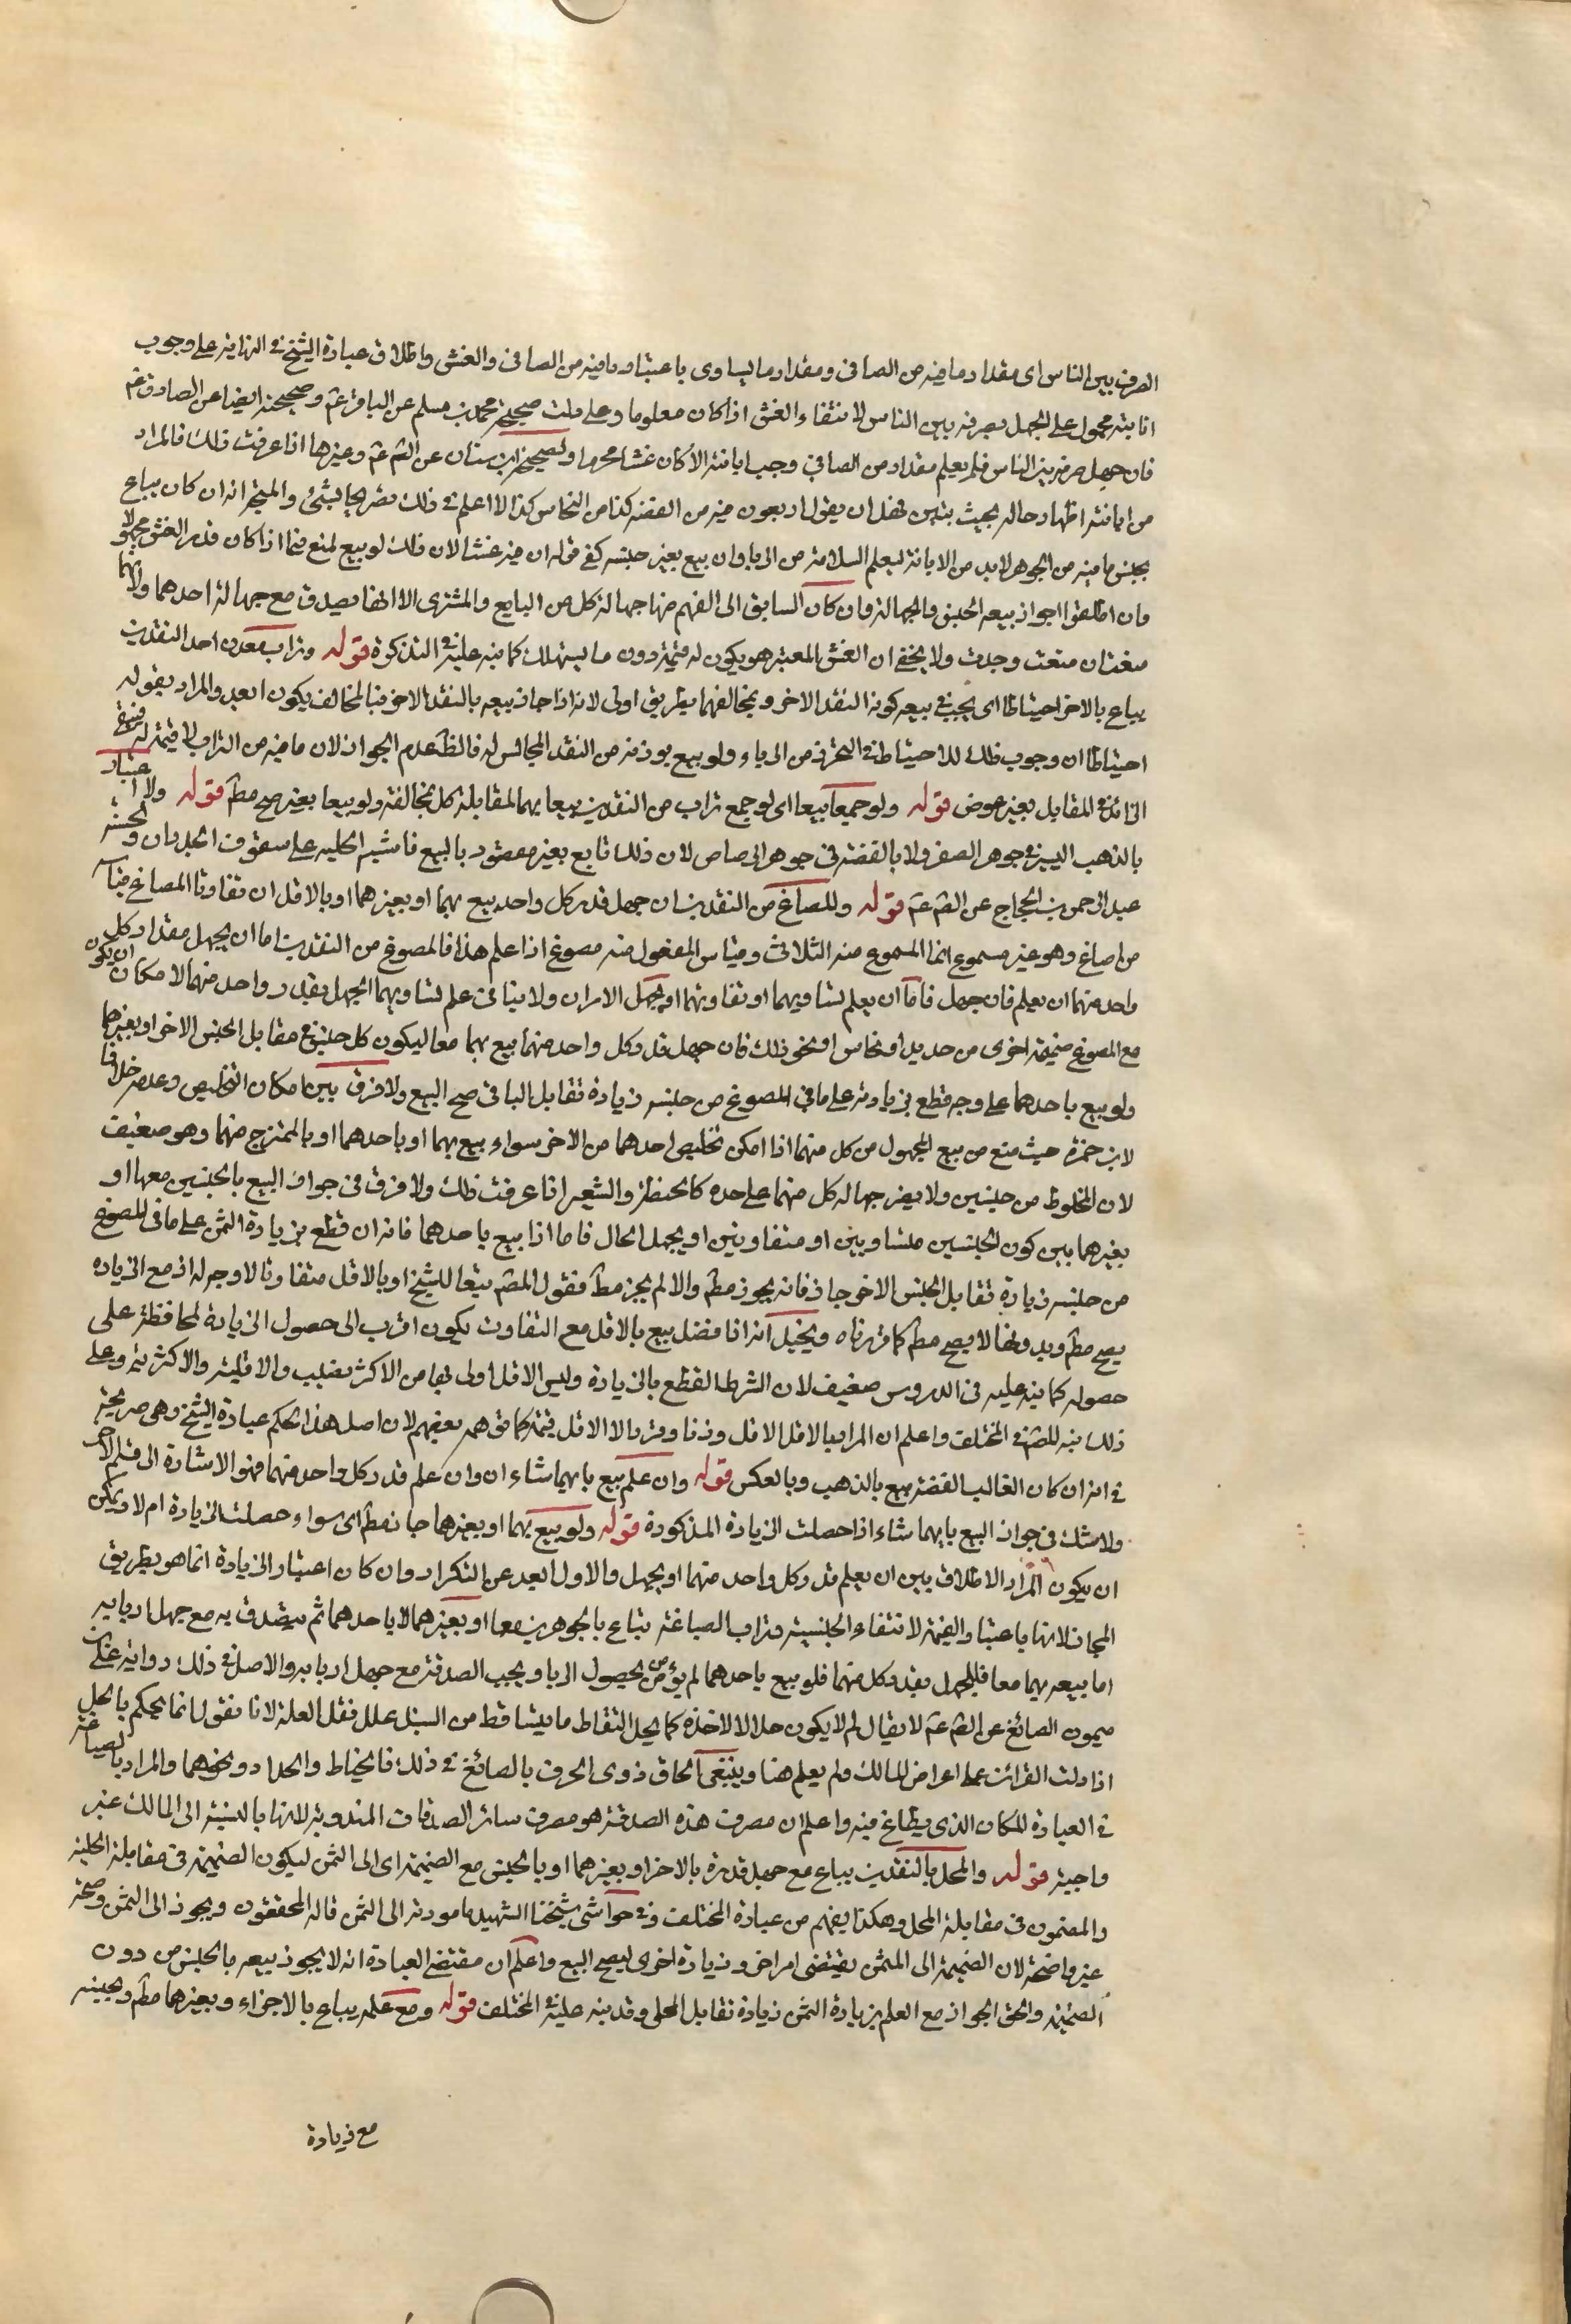 الصرف بين الناس اى مقدار ما فيه من الصافى ومقدار ما يساوى باعتبار ما فيه من الصافى والغش واطلاق عبارة الشيخ فى النهاية على وجوب
ابانته محمول على الجهل بصرفه بين الناس لانتفاء الغش اذا كان معلوما وعلى ذلك صحيحة محمد بن مسلم عن الباقر عم وصحيحته ايضا عن الصادق عم
فان جهل صرفه بين الناس فلم يعلم مقدار من الصافى وجب ابانته الا كان غشا محرما ولصحيحة ابن سنان عن الصم عم وغيرها اذا عرفت ذلك فالمراد
من ابانته اظهار حاله بحيث يتبين فهل ان يقول اربعون فيه من الفضة كذا من النحاس كذا لا اعلم فى ذلك تصريحا بشئ والمتجه انه ان كان يباع
بجنس ما فيه من الجوهر لابد من الابانة ليعلم السلامة من الربا وان بيع بغير جنسه كفى قوله ان فيه غشا لان ذلك لو بيع لمنع فيما اذا كان قدر الغش مجهولا
وان اطلقوا جواز بيعه الجنس والجهالة وان كان السابق الى الفهم منها جهالة كل من البايع والمشترى الا انها يصدق مع جهالة احدهما ولانهما
صفتان منعت وجدت ولا يخفى ان الغش المعتبر هو يكون له قيمة دون ما يستهلك كما نبه عليه فى التذكرة قوله وتراب معدن احد النقدين
يباع بالاخر احتياطا اى يجب فى بيعه كونه النقد الاخر وبمخالفهما بطريق اولى لانه اذا جاز بيعه بالنقد الاخر فبالمخالف يكون ابعد والمراد بقوله
احتياطا ان وجوب ذلك للاحتياط فى التحرز من الرباء ولو بيع بوزنه من النقد المجانس له فالظ عدم الجواز لان ما فيه من التراب لا قيمة له فيبقى
الزائد فى المقابل بغير عوض قوله ولو جمعا بيعا اى لو جمع تراب من النقدين بيعا بهما لمقابلة كل بمخالفه ولو بيعا بغيرهما صح مط قوله ولا اعتبار
بالذهب اليسير فى جوهر الصفر ولا بالفضة فى جوهر الرصاص لان ذلك تابع بغير مقصود بالبيع فاشبه الحلية على سقوف الجدران ولحسنه
عبد الرحمن بن الحجاج عن الصم عم قوله وللمصاغ من النقدين ان جهل قدر كل واحد بيع بهما او بغيرهما او بالاقل ان تفاوتا المصاغ قياسا
من اصاغ وهو غير مسموع انما المسموع منه الثلاثى وقياس المفعول منه مصوغ اذا علم هذا فالمصوغ من النقدين اما ان يجهل مقدار كل
واحد منهما ان يعلم فان جهل فاما ان يعلم تساويهما او تفاوتهما او يجهل الامران ولا ينافى علم تساويهما الجهل بقدر واحد منهما لامكان ان يكون
مع المصوغ ضميمة اخرى من حديد او نحاس او نحو ذلك فان جهل قدر كل واحد منهما بيع بهما معا ليكون كل جنس فى مقابل الجنس الاخر او بغيرهما
ولو بيع باحدهما على وجه قطع بزيادته على ما فى المصوغ من جنسه زيادة تقابل الباقى صح البيع ولا فرق بين امكان التخليص وعدمه خلافا
لابن حمزة حيث منع من بيع المجهول من كل منهما اذا امكن تخليص احدهما من الاخر سواء بيع بهما او باحدهما او بالممتزج منهما وهو ضعيف
لان المخلوط من جنسين ولا يضر جهالة كل منهما على حده كالحنطة والشعير اذا عرفت ذلك ولا فرق فى جواز البيع بالجنسين معها او
بغيرهما بين كون الجنسين متساويين او متفاوتين او يجهل الحال فاما اذا بيع باحدهما فانه ان قطع بزيادة الثمن على ما فى المصوغ
من جنسه زيادة تقابل الجنس الاخر جاز فانه يجوز مط والا لم يجز مط فقول المصم تبعا للشيخ او بالاقل متفاوتا لا وجه له اذ مع الزيادة
يصح مط وبدونها لا يصح مط كما قررناه وتخيل انه اذا فضل بيع بالاقل مع التفاوت يكون اقرب الى حصول الزيادة لمحافظة على
حصوله كما نبه عليه فى الدروس ضعيف لان الشرط القطع بالزيادة وليس الاقل اولى بها من الاكثر بقلب والاقلية والاكثرية وعلى
ذلك نبه المصم فى المختلف واعلم ان المراد بالاقل الاقل وزنا وقدرا لا الاقل قيمة كما توهمه بعضهم لان اصل هذا الحكم عبارة الشيخ وهى صريحة
فى انه ان كان الغالب الفضة بيع بالذهب وبالعكس قوله وان علم بيع بايهما شاء ان وان علم قدر كل واحد منهما فهو الاشارة الى قسم الاخر
ولا شك فى جواز البيع بايهما شاء اذا حصلت الزيادة المذكورة قوله ولو بيع بهما او بغيرهما جاز مط اى سواء حصلت الزيادة ام لا ويمكن
ان يكون المراد الاطلاق بين ان يعلم قدر كل واحد منهما او يجهل والاول ابعد عن التكرار وان كان اعتبار الزيادة انما هو بطريق
المجاز لانها باعتبار القيمة لانتفاء الجنسية وتراب الصياغة يباع بالجوهرين معا او بغيرهما لا باحدهما ثم يتصدق به مع جهل اربابه
اما بيعه بهما معا فللجهل بقدر كل منهما فلو بيع باحدهما لم يؤمن بحصول الربا ويجب الصدقة مع جهل اربابه والاصل فى ذلك رواية على بن
ميمون الصائغ عن الصم عم لا يقال لم لا يكون حلالا لاخذه كما يحل التقاط ما يتساقط من السنبل عللت نقل العلة لانا نقول انما يحكم بالحل
اذا دلت القرائن على اعراض المالك ولم يعلم هنا وينبغى الحاق ذوى الحرف بالصائغ فى ذلك فالخياط والحداد ونحوهما والمراد بالصياغة
فى العبارة المكان الذى يصاغ فيه واعلم ان مصرف هذه الصدقة هو مصرف سائر الصدقات المندوبة لانها بالنسبة الى المالك غير
واجبة قوله والمحلى بالنقدين يباع مع جهل قدره بالاخر او بغيرهما او بالجنس مع الضميمة اى الى الثمن ليكون الضميمة فى مقابلة الحلية
والمضمون فى مقابلة المحلى وهكذا يفهم من عبارة المختلف وفى حواشى شيخنا الشهيد ما صورته الى الثمن قاله المحققون ويجوز الى الثمن وصحته
غير واضحة لان الضميمة الى المثمن يقتضى امر اخر وزيادة اخرى ليصح البيع واعلم ان مقتضى العبارة انه لا يجوز بيعه بالجنس من دون
الضميمة والحق الجواز مع العلم بزيادة الثمن زيادة تقابل المحلى وقد نبه عليه فى المختلف قوله ومع علمه يباع بالاجزاء وبغيرهما مط وبجنسه
مع زيادة